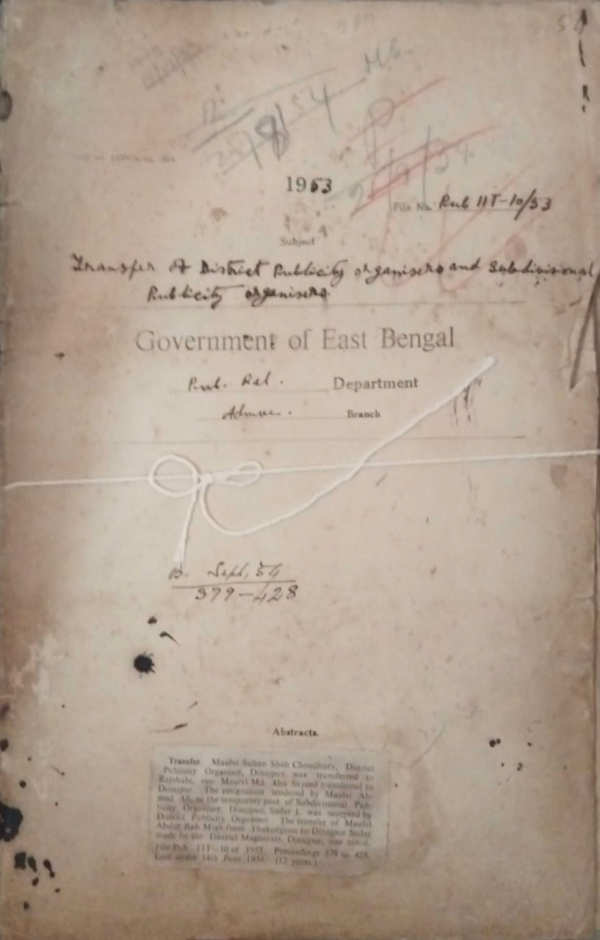 54
12
28/8/54
1953
File No. Pub 11T-10/53
Subject
Transfer of District Publicity organisers and Subdivisional
Publicity organisers.
Government of East Bengal
Pub. Rel. Department
Admn. Branch
B. Sept, 54
379-428
Abstracts.
Transfer. Maulvi Sultan Shah Choudhury, District
Publicity Organiser, Dinajpur, was transferred to
Rajshahi, Maulvi Md. Abu Sayeed transferred to
Dinajpur. The resignation tendered by Maulvi
Ali, to the temporary post of Subdivisional Pub-
licity Organiser, Dinajpur, Sadar I, was accepted by
District Publicity Organiser. The transfer of Maulvi
Abdur Rab Miah from Thakurgaon to Dinajpur Sadar
made by the District Magistrate, Dinajpur, was noted.
File Pub. 11T-10 of 1953. Proceedings 379 to 428.
Last order 14th June 1954. (12 years.)